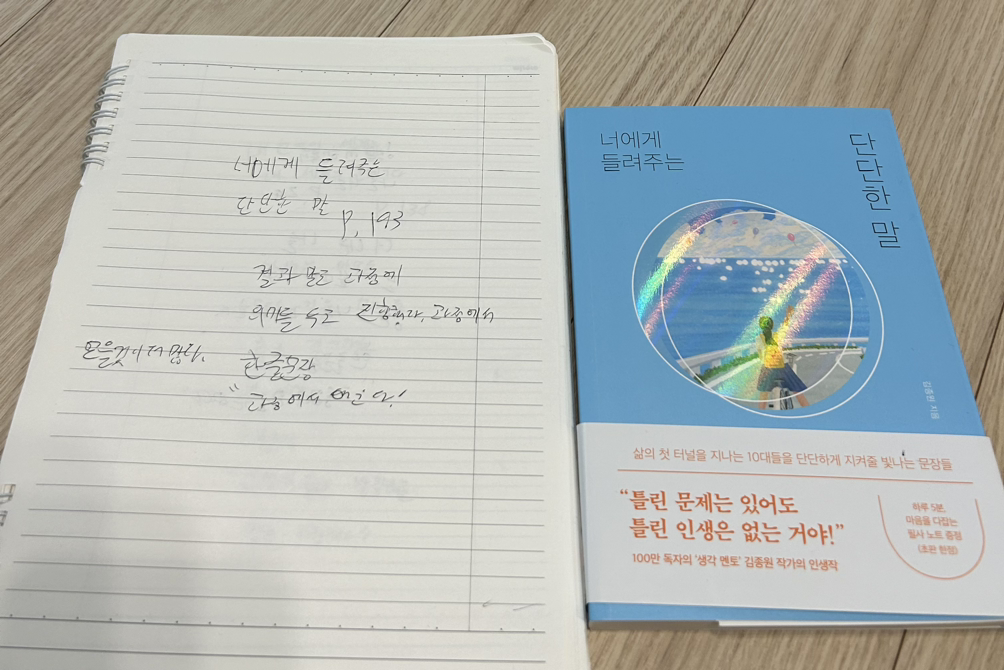 너에게 들려주는
단단한 말
P. 193
결과 보다 과정에
의미를 두고 진행한다. 과정에서
모을것이 더 많다.
한글문장
"과정에서 배운다!
너에게
들려주는
단단한 말
김종원 지음
삶의 첫 터널을 지나는 10대들을 단단하게 지켜줄 빛나는 문장들
“틀린 문제는 있어도
틀린 인생은 없는 거야!”
100만 독자의 ‘생각 멘토’ 김종원 작가의 인생작
하루 5분,
마음을 다잡는
필사 노트 증정
(초판 한정)